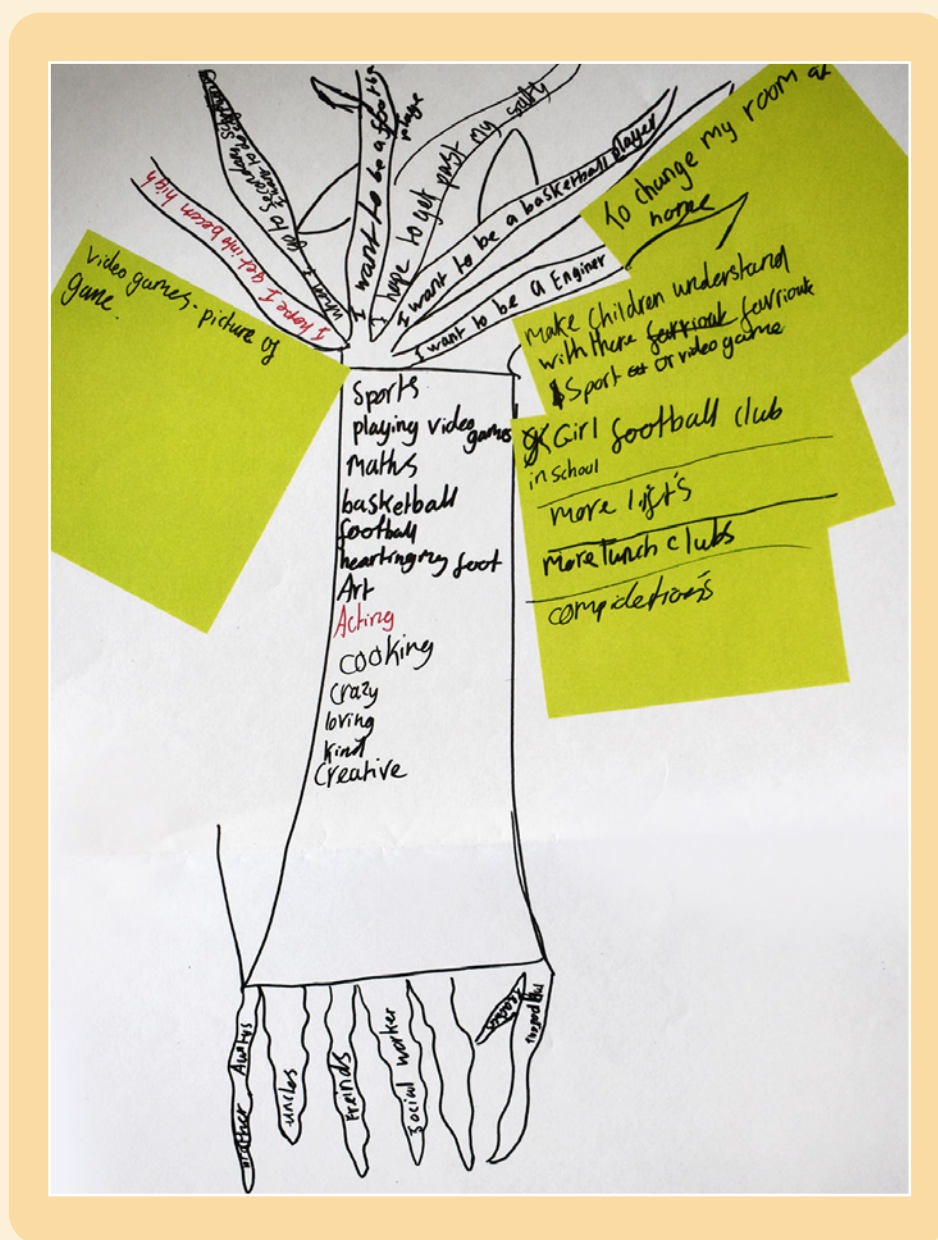 I hope I get into becon high
when I go to secondary
I want to be a footb
playe
I hope to get past my
I want to be a basketball player
I want to be a Enginer
To change my room at
home
video games. picture of
game.
make children understand
with there favriouk
Sport or video game
Girl football club
in school
more lift's
more lunch clubs
compidetions's
Sports
playing video games
maths
basketball
football
hearting my foot
Art
Acting
cooking
crazy
loving
kind
Creative
brother Auntys
uncles
Freinds
Social worker